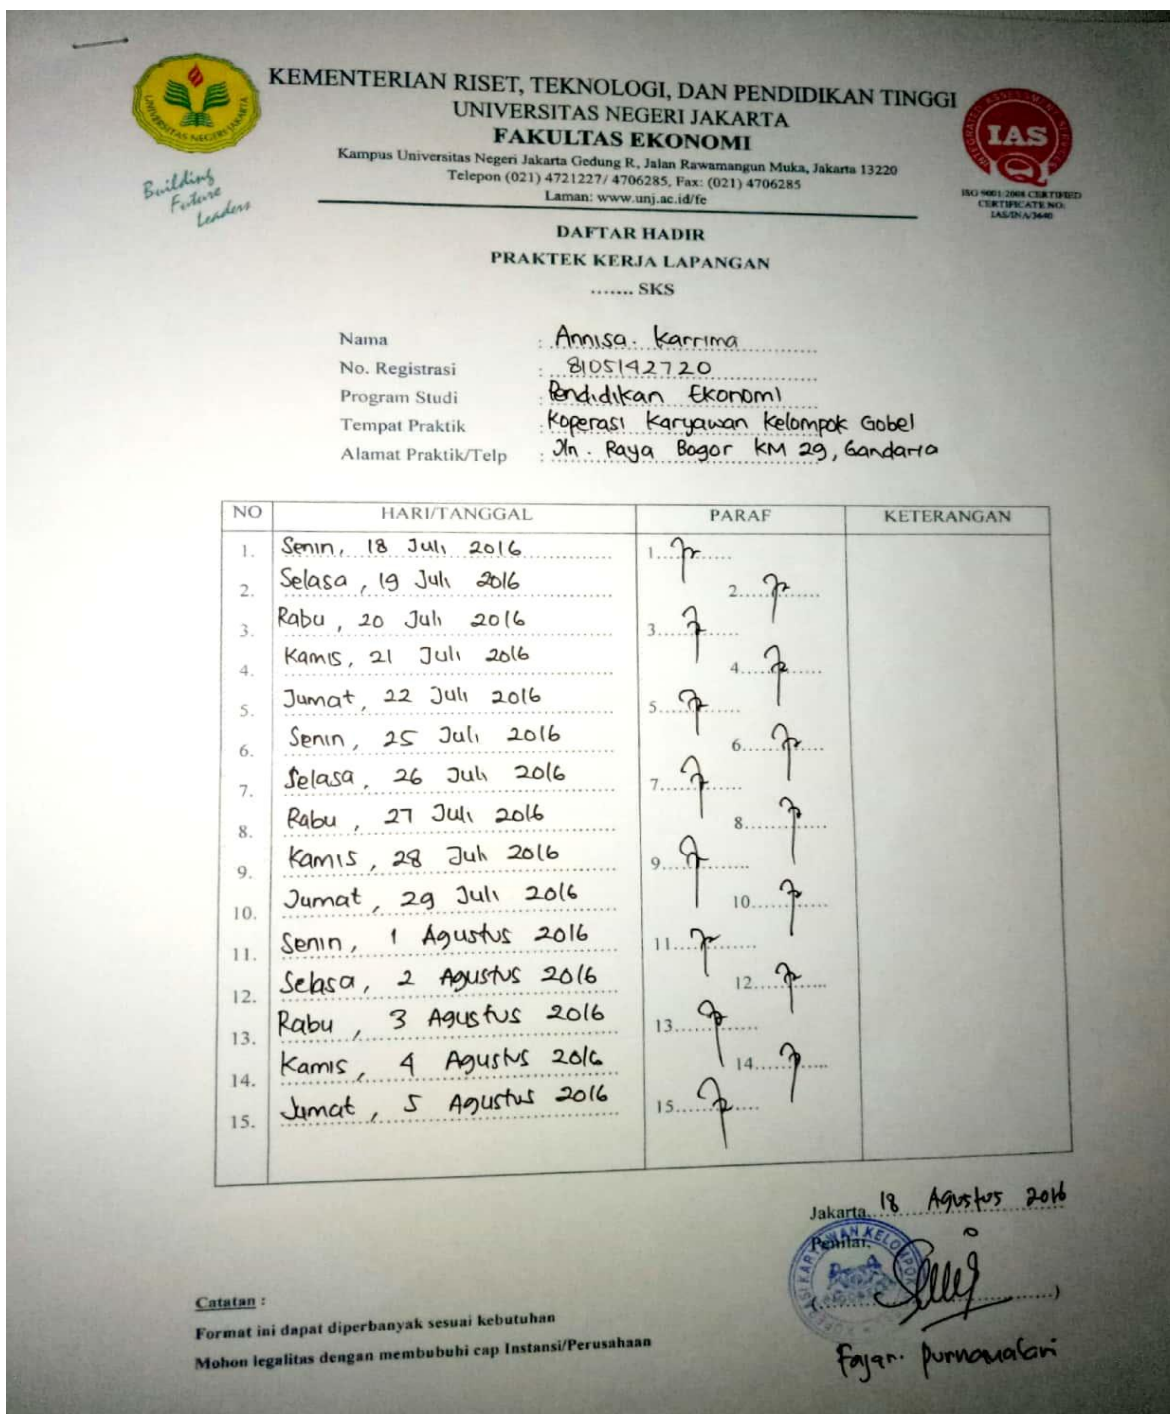 KEMENTERIAN RISET, TEKNOLOGI, DAN PENDIDIKAN TINGGI
UNIVERSITAS NEGERI JAKARTA
FAKULTAS EKONOMI
Kampus Universitas Negeri Jakarta Gedung R, Jalan Rawamangun Muka, Jakarta 13220
Telepon (021) 4721227/ 4706285, Fax: (021) 4706285
Laman: www.unj.ac.id/fe
UNIVERSITAS NEGERI JAKARTA
Building
Future
Leaders
IAS
ISO 9001:2008 CERTIFIED
CERTIFICATE NO:
IAS/INA/3640
DAFTAR HADIR
PRAKTEK KERJA LAPANGAN
....... SKS
Nama : Annisa. Karrima
No. Registrasi : 8105142720
Program Studi : Pendidikan Ekonomi
Tempat Praktik : Koperasi Karyawan Kelompok Gobel
Alamat Praktik/Telp : Jln. Raya Bogor KM 29, Gandaria
NO HARI/TANGGAL PARAF KETERANGAN
1. Senin, 18 Juli 2016 1.
2. Selasa, 19 Juli 2016 2.
3. Rabu, 20 Juli 2016 3.
4. Kamis, 21 Juli 2016 4.
5. Jumat, 22 Juli 2016 5.
6. Senin, 25 Juli 2016 6.
7. Selasa, 26 Juli 2016 7.
8. Rabu, 27 Juli 2016 8.
9. Kamis, 28 Juli 2016 9.
10. Jumat, 29 Juli 2016 10.
11. Senin, 1 Agustus 2016 11.
12. Selasa, 2 Agustus 2016 12.
13. Rabu, 3 Agustus 2016 13.
14. Kamis, 4 Agustus 2016 14.
15. Jumat, 5 Agustus 2016 15.
Jakarta, 18 Agustus 2016
Penilai,
(....................)
Fajar. Purnamasari
Catatan :
Format ini dapat diperbanyak sesuai kebutuhan
Mohon legalitas dengan membubuhi cap Instansi/Perusahaan